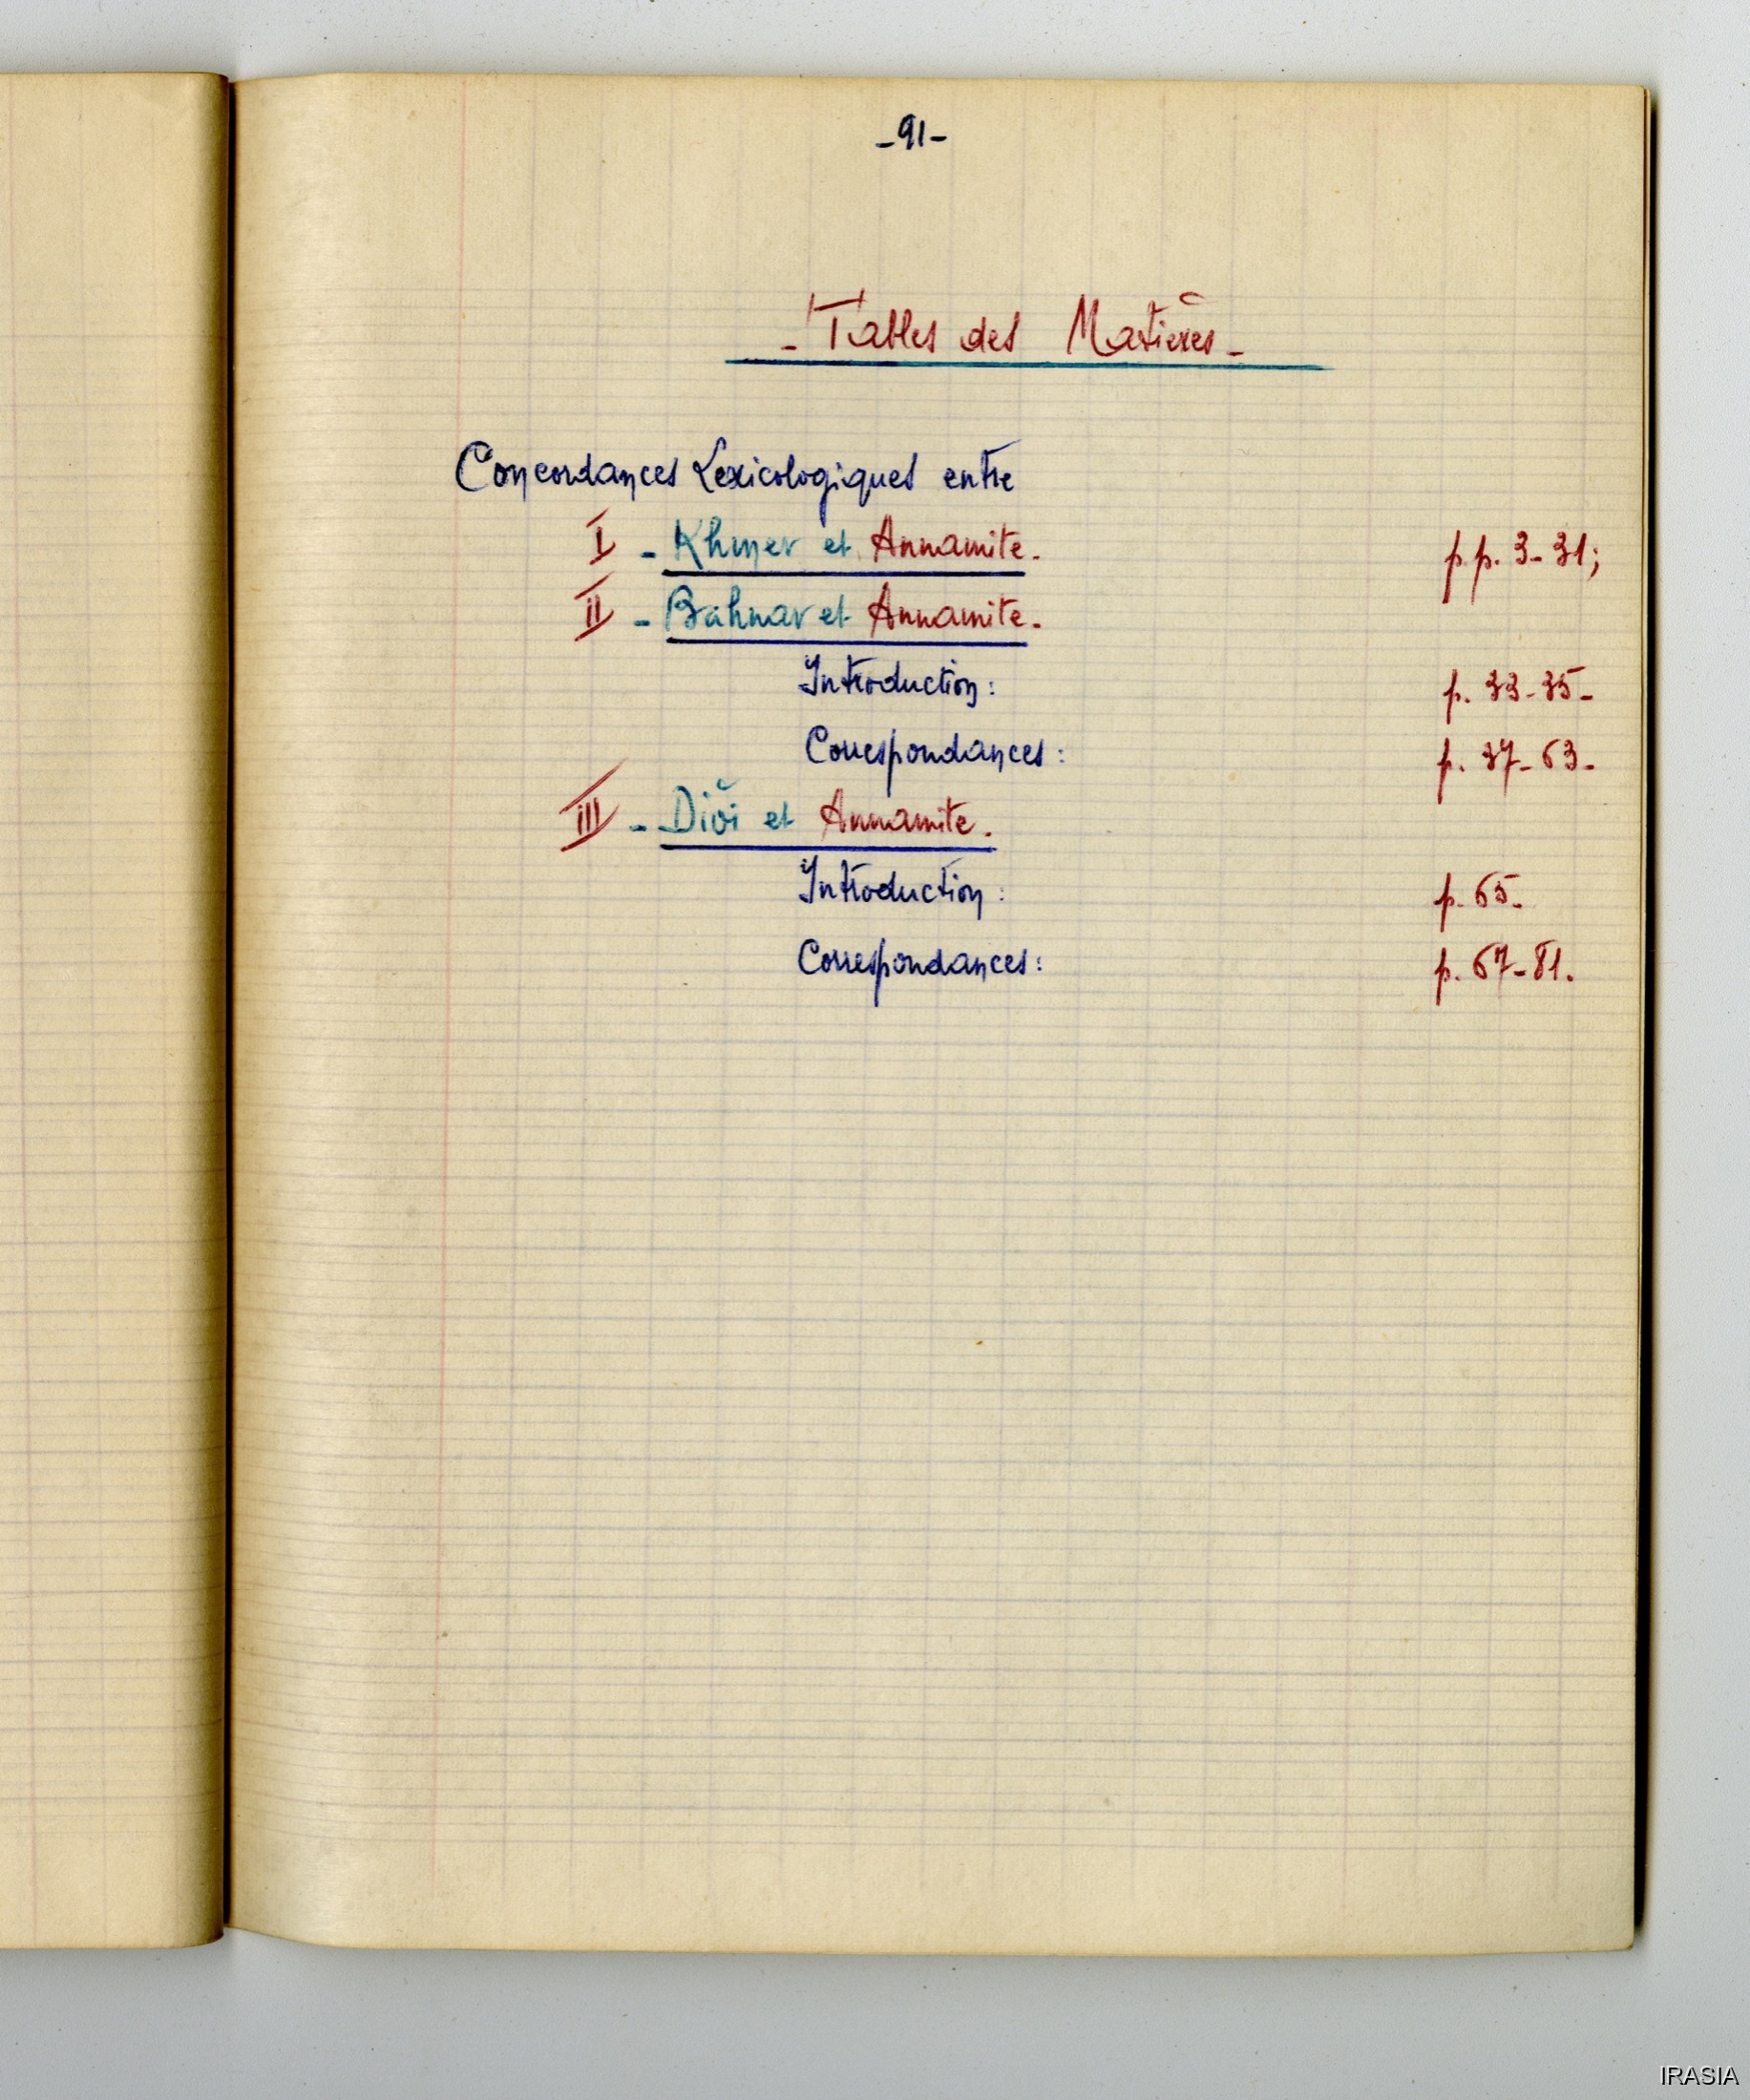 -91-
- Tables des Matières -
Concordances Lexicologiques entre
I - Khmer et Annamite. p.p. 3-31;
II - Bahnar et Annamite.
Introduction: p. 33-35-
Correspondances: p. 37-63.
III - Diôi et Annamite.
Introduction: p. 65.
Correspondances: p. 67-81.
IRASIA